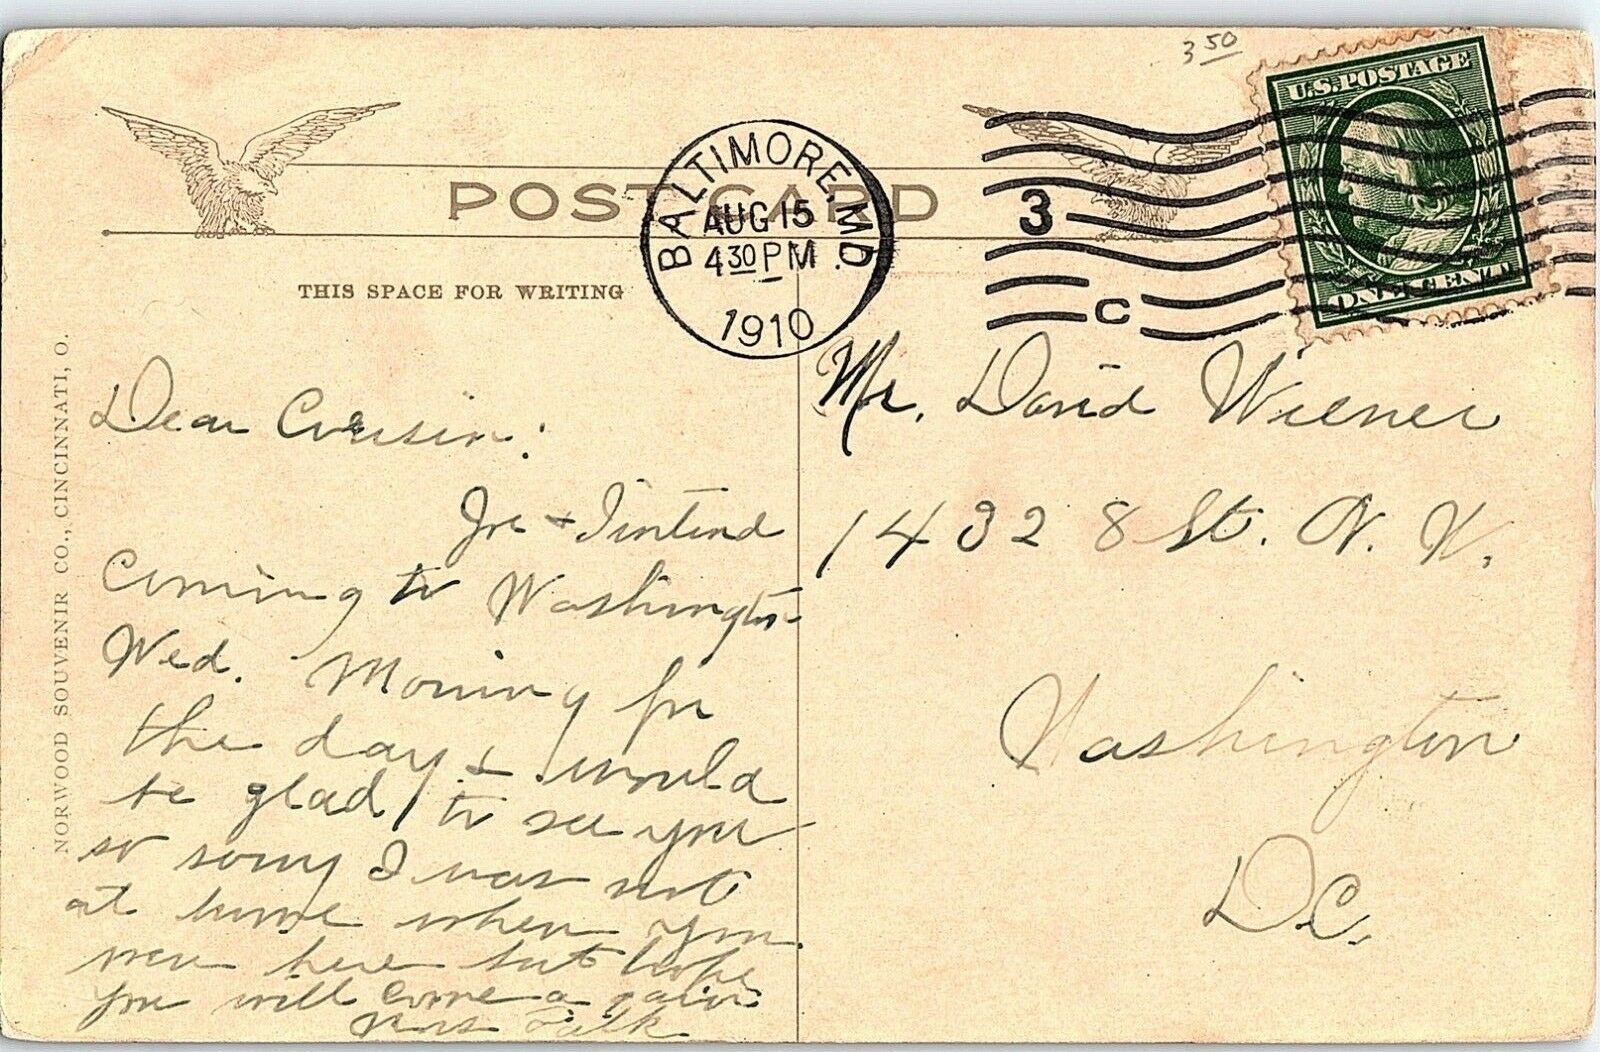 3 50
U.S. POSTAGE
BALTIMORE, MD.
AUG 15
4 30 PM
1910
3
C
POST CARD
THIS SPACE FOR WRITING
NORWOOD SOUVENIR CO., CINCINNATI, O.
Dear Cousin:
+ Intend
Coming to Washington
Wed. Morning for
the day + would
be glad to see you
so sorry I was not
at home when you
were here but hope
you will come again
Mrs Falk
Mr. David Wiener
1432 8 St. N. W.
Washington
D.C.